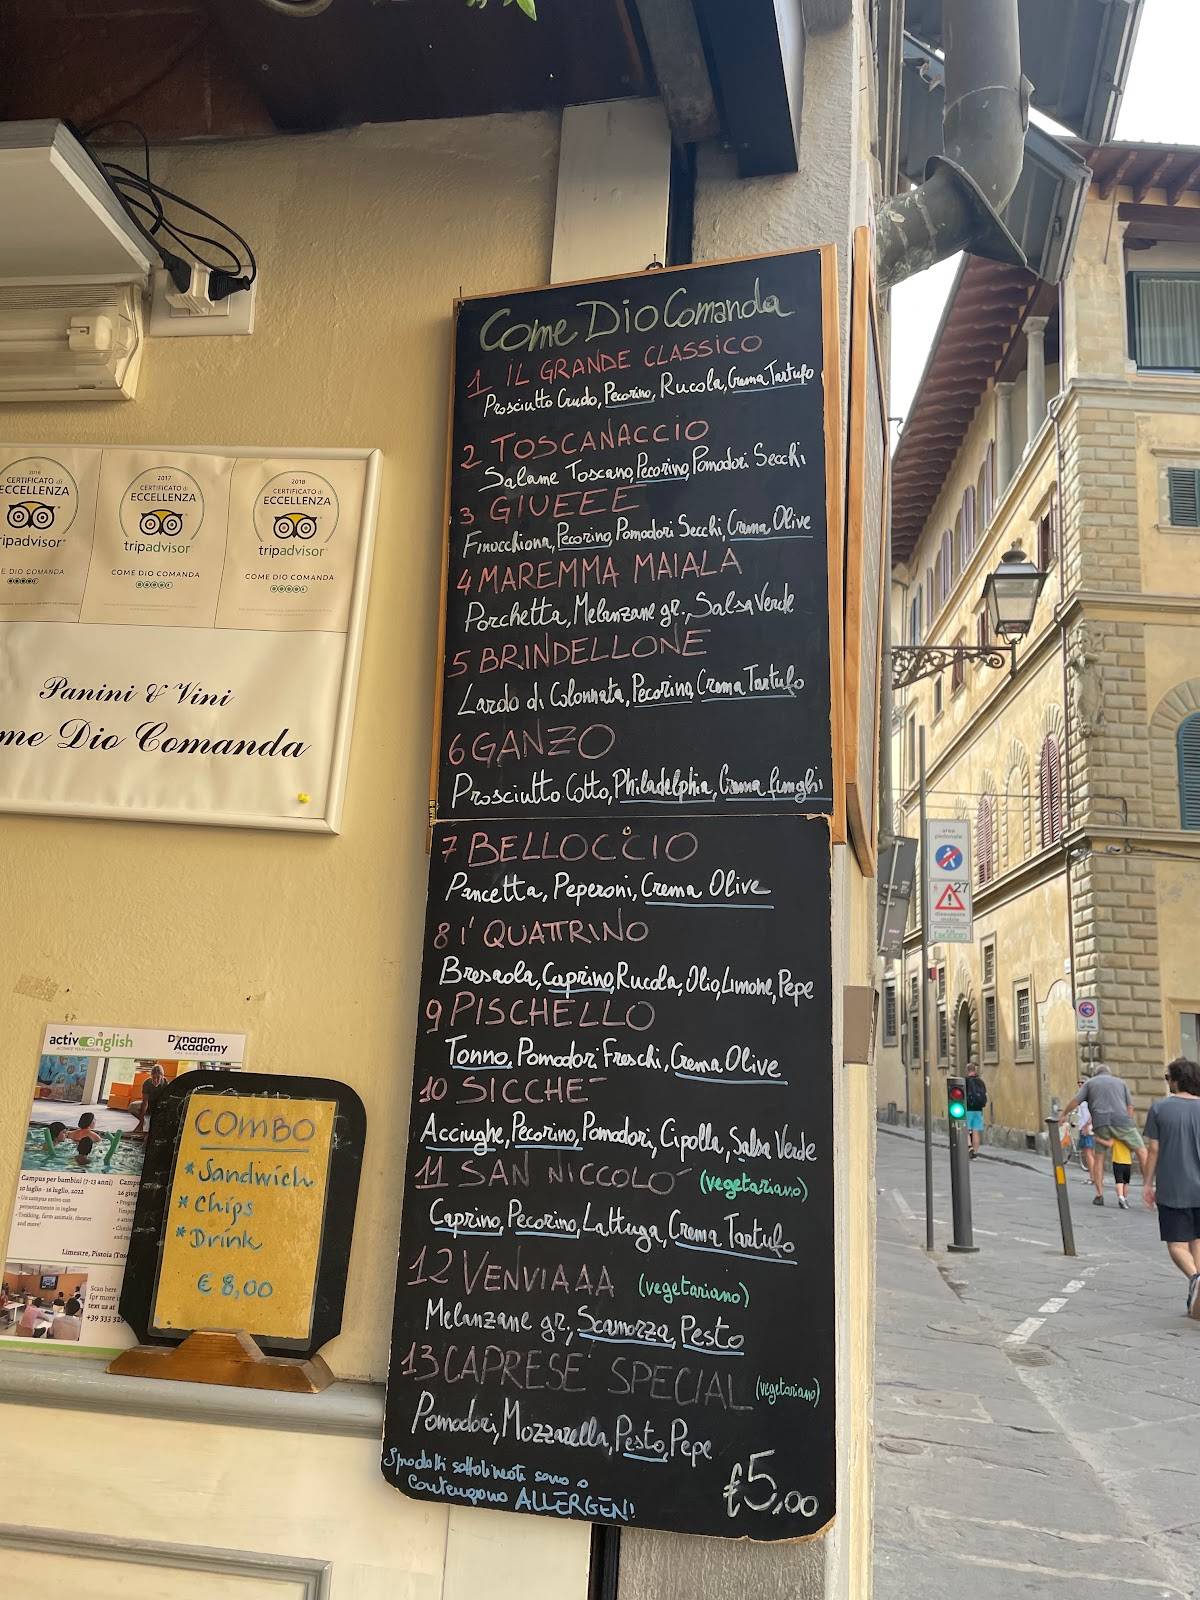 Come Dio Comanda
1 IL GRANDE CLASSICO
Prosciutto Crudo, Pecorino, Rucola, Crema Tartufo
2 TOSCANACCIO
Salame Toscano, Pecorino, Pomodori Secchi
3 GIUEEE
Finocchiona, Pecorino, Pomodori Secchi, Crema Olive
4 MAREMMA MAIALA
Porchetta, Melanzane gr., Salsa Verde
5 BRINDELLONE
Lardo di Colonnata, Pecorino, Crema Tartufo
6 GANZO
Prosciutto Cotto, Philadelphia, Crema funghi
7 BELLOCCIO
Pancetta, Peperoni, Crema Olive
8 I' QUATTRINO
Bresaola, Caprino, Rucola, Olio, Limone, Pepe
9 PISCHELLO
Tonno, Pomodori Freschi, Crema Olive
10 SICCHE
Acciughe, Pecorino, Pomodori, Cipolla, Salsa Verde
11 SAN NICCOLO' (vegetariano)
Caprino, Pecorino, Lattuga, Crema Tartufo
12 VENVIAAA (vegetariano)
Melanzane gr., Scamorza, Pesto
13 CAPRESE SPECIAL (vegetariano)
Pomodori, Mozzarella, Pesto, Pepe
I prodotti sottolineati sono o
contengono ALLERGENI
€5,00
2016
CERTIFICATO di
ECCELLENZA
ripadvisor
E DIO COMANDA
2017
CERTIFICATO di
ECCELLENZA
tripadvisor
COME DIO COMANDA
2018
CERTIFICATO di
ECCELLENZA
tripadvisor
COME DIO COMANDA
Panini & Vini
me Dio Comanda
activ english
Dynamo
Academy
Campus per bambini (7-13 anni)
10 luglio - 16 luglio, 2022
Limestre, Pistoia
Scan here
text us at
+39 333
COMBO
* Sandwich
* Chips
* Drink
€ 8,00
area
pedonale
27